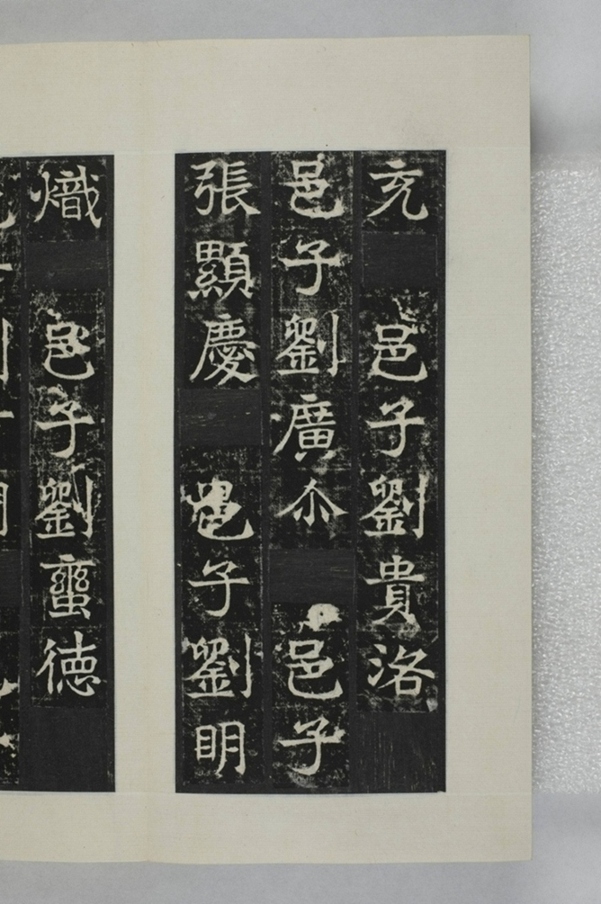 充　邑子劉貴洛
邑子劉廣尒　邑子
張顯慶　邑子劉明
熾　邑子劉蠻德